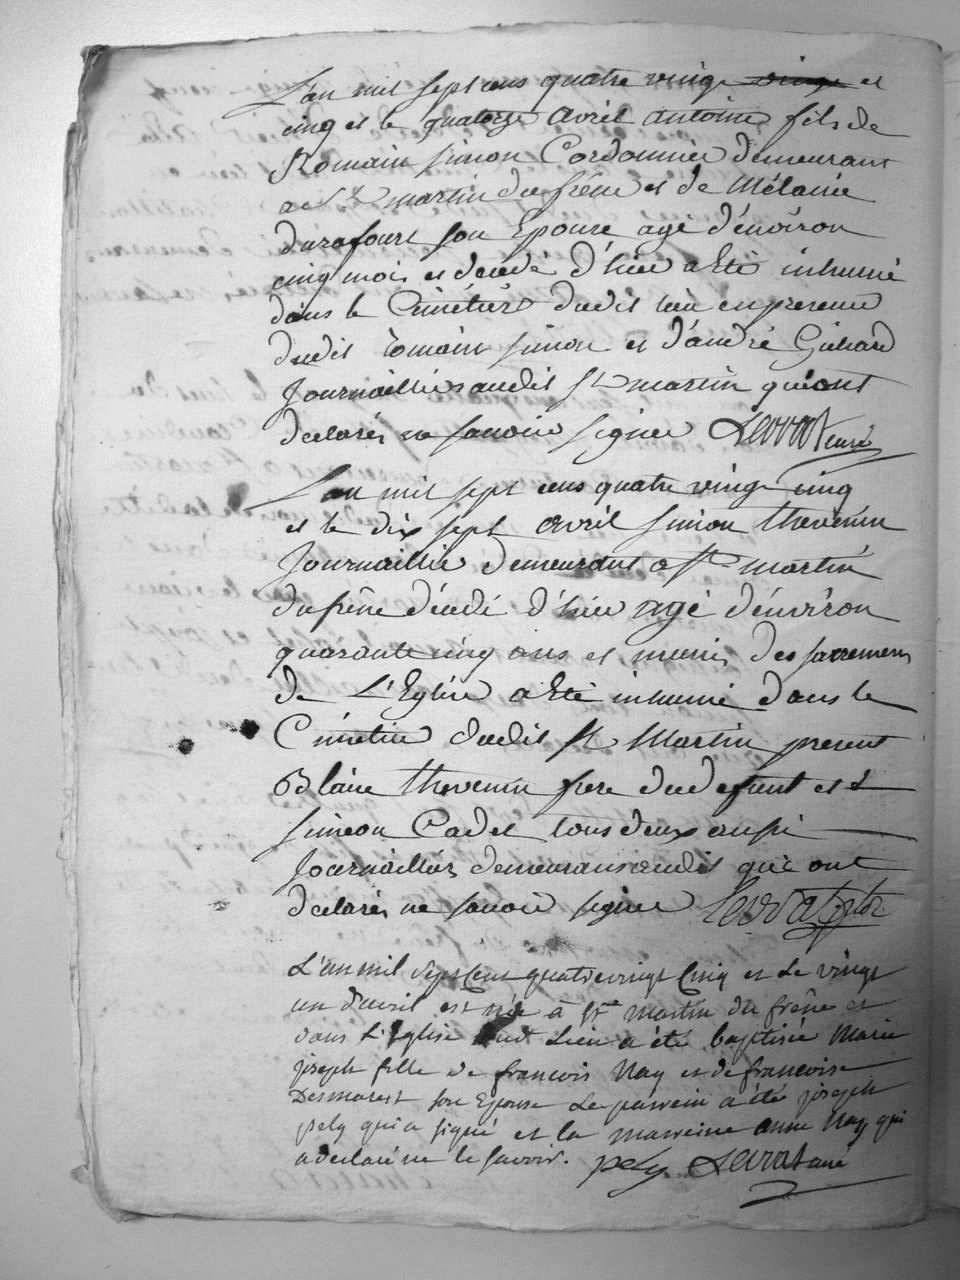 L'an mil sept cens quatre vingt vingt et
cinq et le quatorze avril antoine fils de
Romain simon Cordonnier demeurant
a St martin du frêne et de Mélanie
Durafourt son Epouse agé d'environ
cinq mois et décédé d'hier a Eté inhumé
dans le Cimétière dudit lieu en presence
dudit romain simon et d'andré Guhard
Journailliers audit St martin qui ont
declarés ne savoir signer Levrat curé
L'an mil sept cens quatre vingt cinq
et le dix sept avril simon thevenin
Journaillier demeurant a St martin
du frêne décédé d'hier agé d'environ
quarante cinq ans et munis des sacremens
de L'Eglise a Eté inhumé dans le
Cimétiere dudit St Martin present
Blaise thevenin frere du defunt et
simeon Cadet tous deux aussi
Journailliers demeurans audit qui ont
declarés ne savoir signer Levrat
L'an mil sept Cent quatrevingt Cinq et Le vingt
un d'avril est née à St Martin du frêne et
dans L'Eglise dudt Lieu a été baptisée Marie
joseph fille de francois Nay et de francoise
Desmarest son Epouse Le parrein a été joseph
pely qui a signé et la marreine anne Nay qui
a declaré ne le savoir. pely Levrat curé